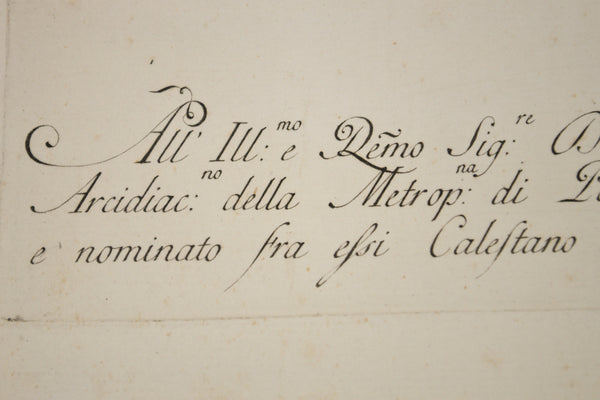 All' Ill:mo e Rẽmo Sig:re
Arcidiac:no della Metrop:na di
e nominato fra eſsi Caleſtano